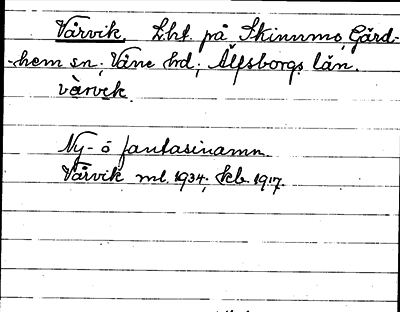 Vårvik, Lht. på Skinnmo, Gärd-
-hem sn; Väne hd; Älfsborgs län.
vàrvek
Ny- o fantasinamn.
Vårvik ml. 1934; Kb. 1917.